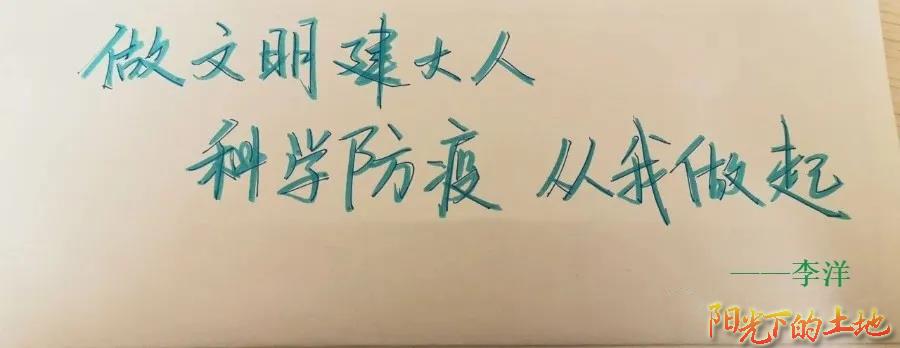 做文明建大人
科学防疫 从我做起
——李洋
阳光下的土地